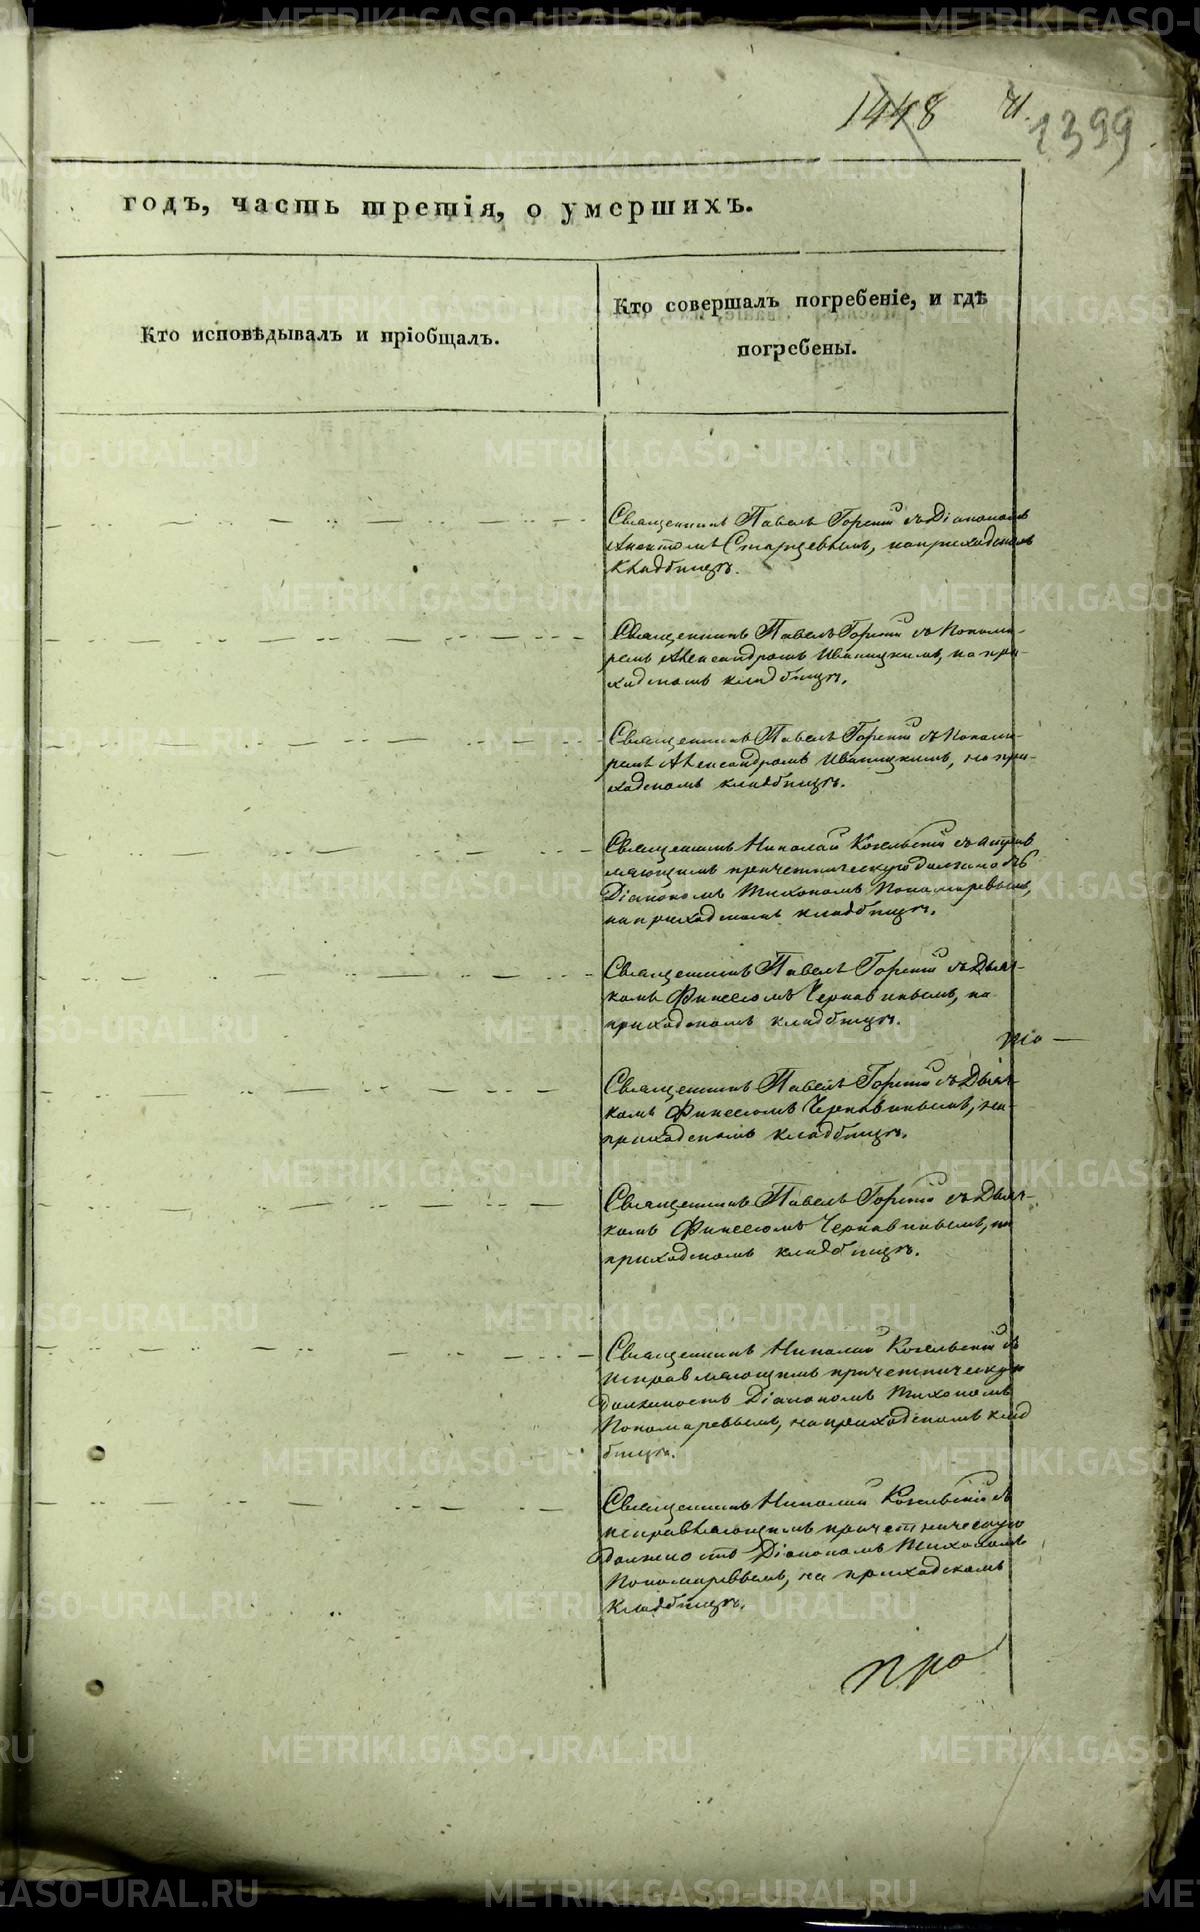 1448 71.
1399
годъ, часть третія, о умершихъ.
Кто исповѣдывалъ и пріобщалъ.
Кто совершалъ погребеніе, и гдѣ
погребены.
Священникъ Павелъ Горскій съ Діакономъ
Старцевымъ, на приходскомъ
кладбищѣ.
Священникъ Павелъ Горскій съ Понома-
ремъ Александромъ Иваницкимъ, на при-
ходскомъ кладбищѣ.
Священникъ Павелъ Горскій съ Понома-
ремъ Александромъ Иваницкимъ, на при-
ходскомъ кладбищѣ.
Священникъ Николай Кожевскій съ исправ
ляющимъ причетническую должность
Діакономъ Тихономъ Пономаревымъ,
на приходскомъ кладбищѣ.
Священникъ Павелъ Горскій съ Дьяч-
комъ Финеесомъ Чернавинымъ, на
приходскомъ кладбищѣ.
Священникъ Павелъ Горскій съ Дьяч-
комъ Финеесомъ Чернавинымъ, на
приходскомъ кладбищѣ.
Священникъ Павелъ Горскій съ Дьяч-
комъ Финеесомъ Чернавинымъ, на
приходскомъ кладбищѣ.
Священникъ Николай Кожевскій съ
исправляющимъ причетническую
должность Діакономъ Тихономъ
Пономаревымъ, на приходскомъ клад
бищѣ.
Священникъ Николай Кожевскій съ
исправляющимъ причетническую
должность Діакономъ Тихономъ
Пономаревымъ, на приходскомъ
кладбищѣ.
про
METRIKI.GASO-URAL.RU